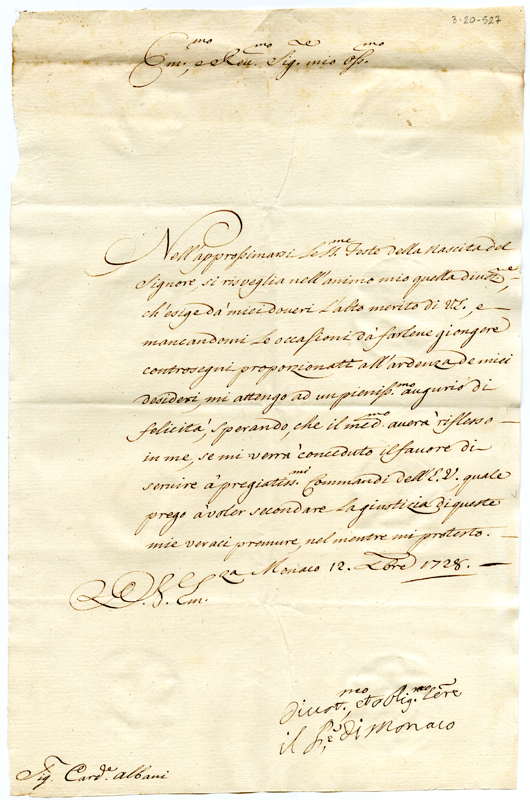 3-20-527
Em.mo, e Reu.mo Sig.re mio Oss.mo
Nell'approssimarsi le SS.me Feste della Nascita del
Signore, si risveglia nell'animo mio quella diuot.ne,
ch'esige da' miei doueri l'alto merito di V.E., e
mancandomi le occasioni da' farlene giongere
controsegni proporzionati all'ardenza de miei
desideri, mi attengo ad un pieniss.mo augurio di
felicità, sperando, che il med.mo auerà riflesso
in me, se mi verrà conceduto il fauore di
seruire à pregiatiss.mi Commandi dell'E.V. quale
prego à voler secondare la giusticia di queste
mie veraci premure, nel mentre mi protesto.
D. V. Em.za Monaco 12. Xbre 1728.
diuot.mo, et oblig.mo Ser.re
il P.e di Monaco
Sig. Card.e Albani